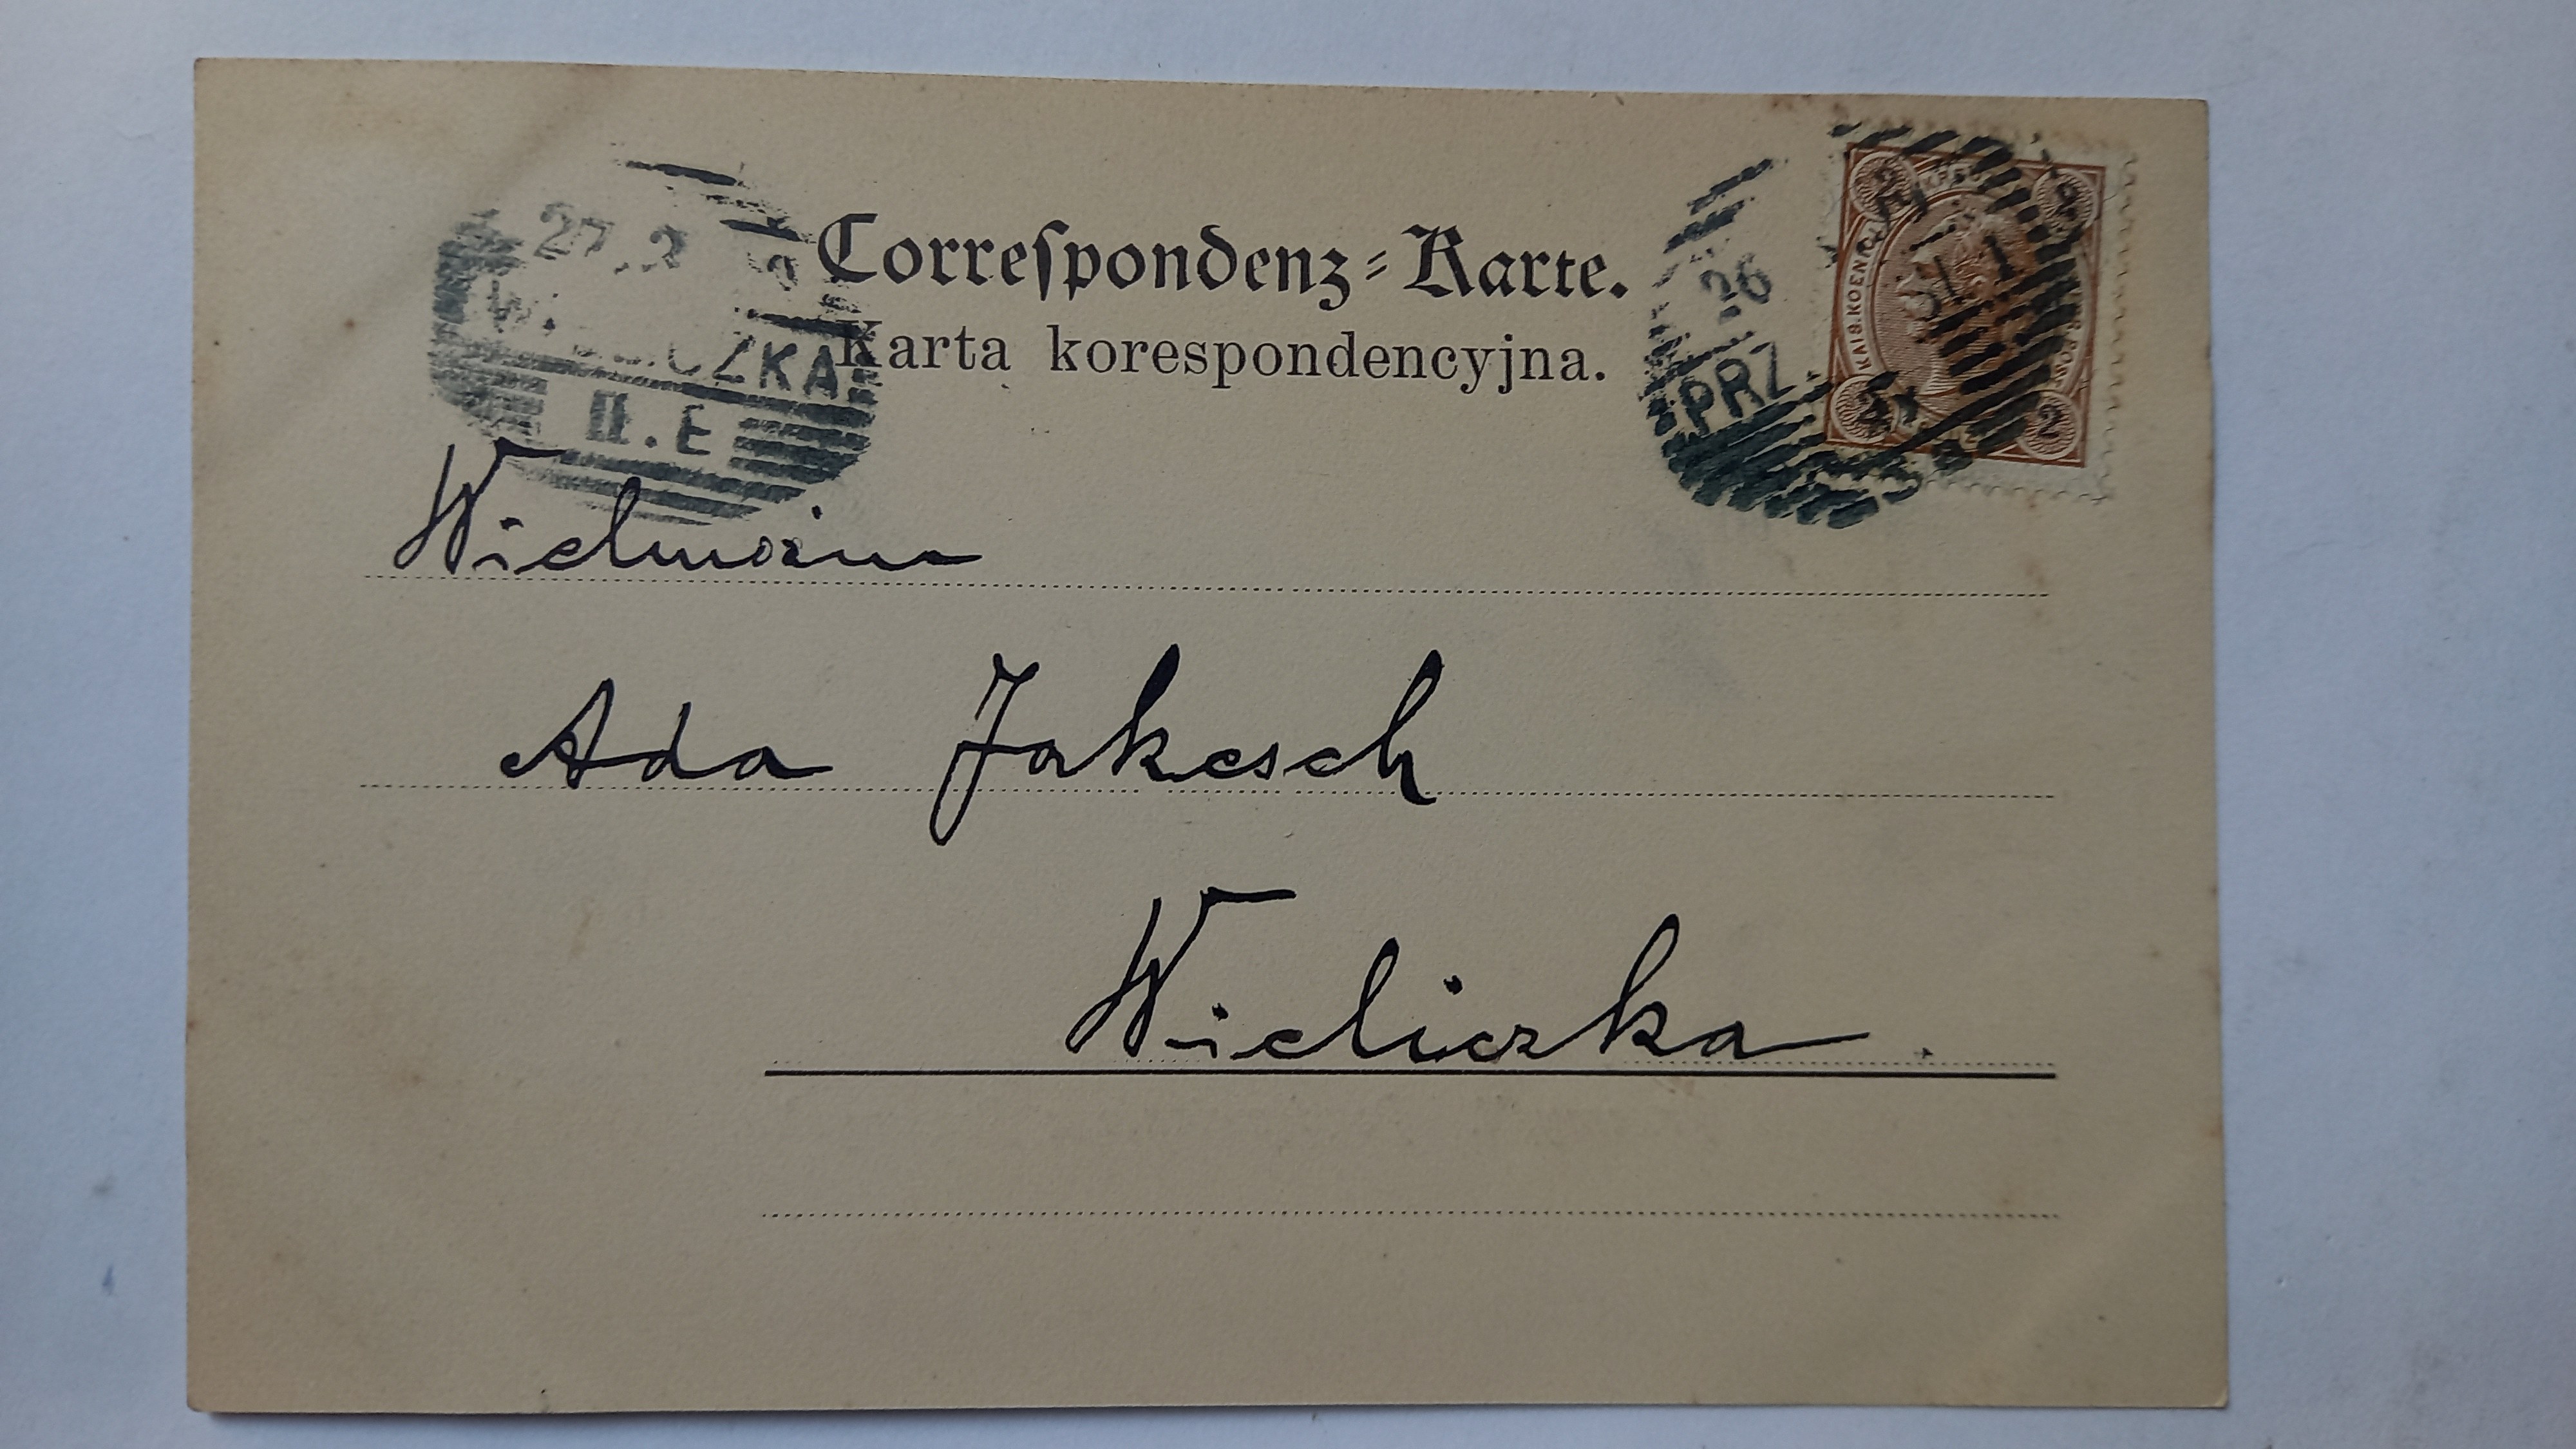 Correſpondenz-Karte.
Karta korespondencyjna.
27. 2
II. E
26
PRZ
KAIS. KOENIGL.
2
2
Wielmożna
Ada Jakesch
Wieliczka